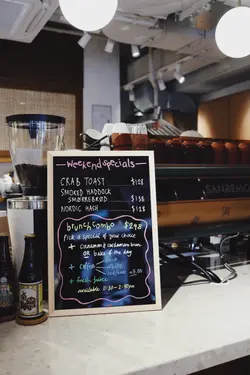 Weekend specials
CRAB TOAST $128
SMOKED HADDOCK
SMØRREBRØD $138
NORDIC HASH $128
brunch combo $298
Pick a special of your choice
+ cinnamon & cardamom bun
OR bake of the day
+ coffee
+ fresh juice
available 11:30 - 2:45pm
SANREMO